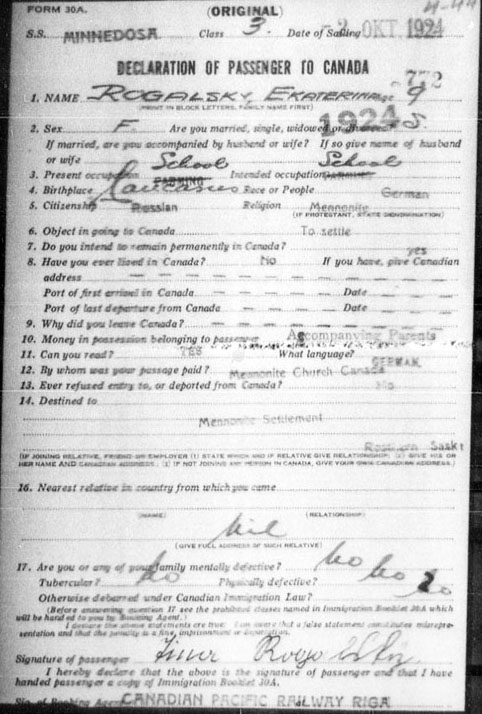 FORM 30A.
(ORIGINAL)
S.S. MINNEDOSA Class 3. Date of Sailing 2 OKT 1924
DECLARATION OF PASSENGER TO CANADA
772
1. NAME ROGALSKY EKATERINA Age 9
(PRINT IN BLOCK LETTERS, FAMILY NAME FIRST)
1924
2. Sex F. Are you married, single, widowed or divorced S.
If married, are you accompanied by husband or wife? If so give name of husband
or wife
3. Present occupation School FARMING Intended occupation School
4. Birthplace Caucasus Race or People German
5. Citizenship Russian Religion Mennonite
(IF PROTESTANT, STATE DENOMINATION)
6. Object in going to Canada To settle
7. Do you intend to remain permanently in Canada? yes
8. Have you ever lived in Canada? No If you have, give Canadian
address
Port of first arrival in Canada Date
Port of last departure from Canada Date
9. Why did you leave Canada?
10. Money in possession belonging to passenger Accompanying Parents
11. Can you read? YES What language? GERMAN
12. By whom was your passage paid? Mennonite Church Canada
13. Ever refused entry to, or deported from Canada? No
14. Destined to
Mennonite Settlement
Rosthern Sask
(IF JOINING RELATIVE, FRIEND OR EMPLOYER (1) STATE WHICH AND IF RELATIVE GIVE RELATIONSHIP; (2) GIVE HIS OR
HER NAME AND CANADIAN ADDRESS; (3) IF NOT JOINING ANY PERSON IN CANADA, GIVE YOUR OWN CANADIAN ADDRESS.)
16. Nearest relative in country from which you came
(NAME) (RELATIONSHIP)
Nil
(GIVE FULL ADDRESS OF SUCH RELATIVE)
17. Are you or any of your family mentally defective? No
Tubercular? No Physically defective? No
Otherwise debarred under Canadian Immigration Law? No
(Before answering question 17 see the prohibited classes named in Immigration Booklet 30A which
will be handed to you by Booking Agent.)
I declare the above statements are true. I am aware that a false statement constitutes misrepre-
sentation and that the penalty is a fine, imprisonment or deportation.
Signature of passenger
I hereby declare that the above is the signature of passenger and that I have
handed passenger a copy of Immigration Booklet 30A.
Sig. of Booking Agent CANADIAN PACIFIC RAILWAY RIGA